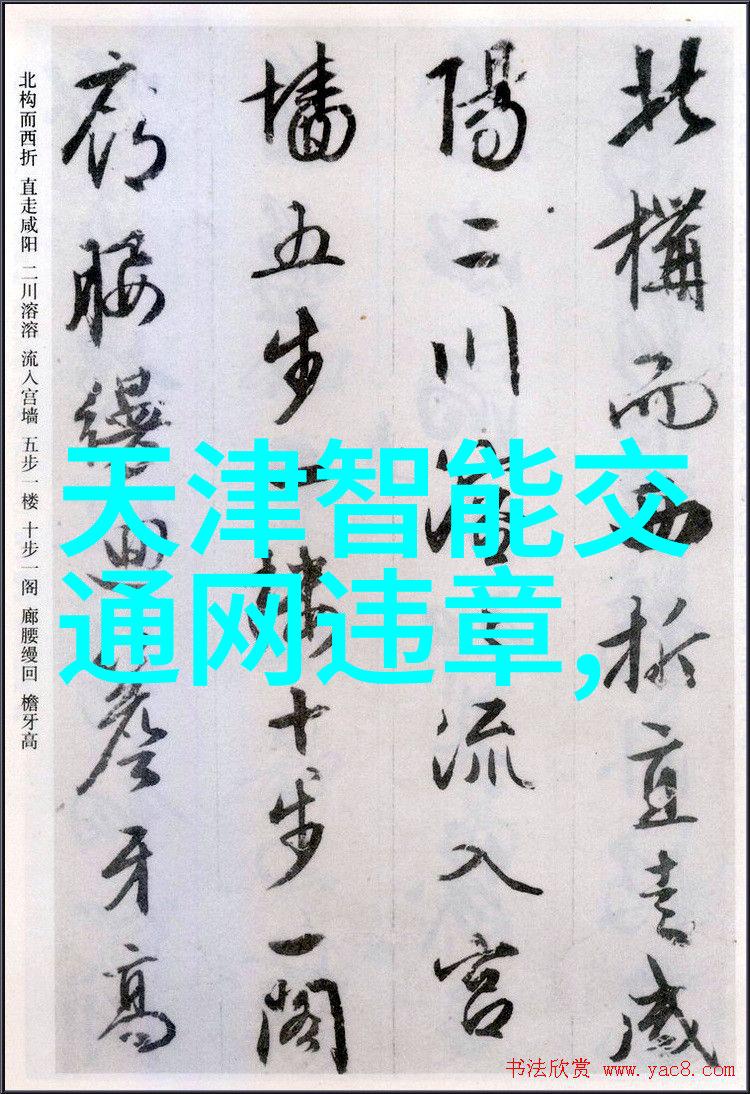 北構而西折直走咸
陽二川溶〻流入宫
墙五步一楼十步一閣
廊腰縵迴簷牙高
北构而西折 直走咸阳 二川溶溶 流入宫墙 五步一楼 十步一阁 廊腰缦回 檐牙高
天津智能交
通网违章,
书法欣赏 www.yac8.com